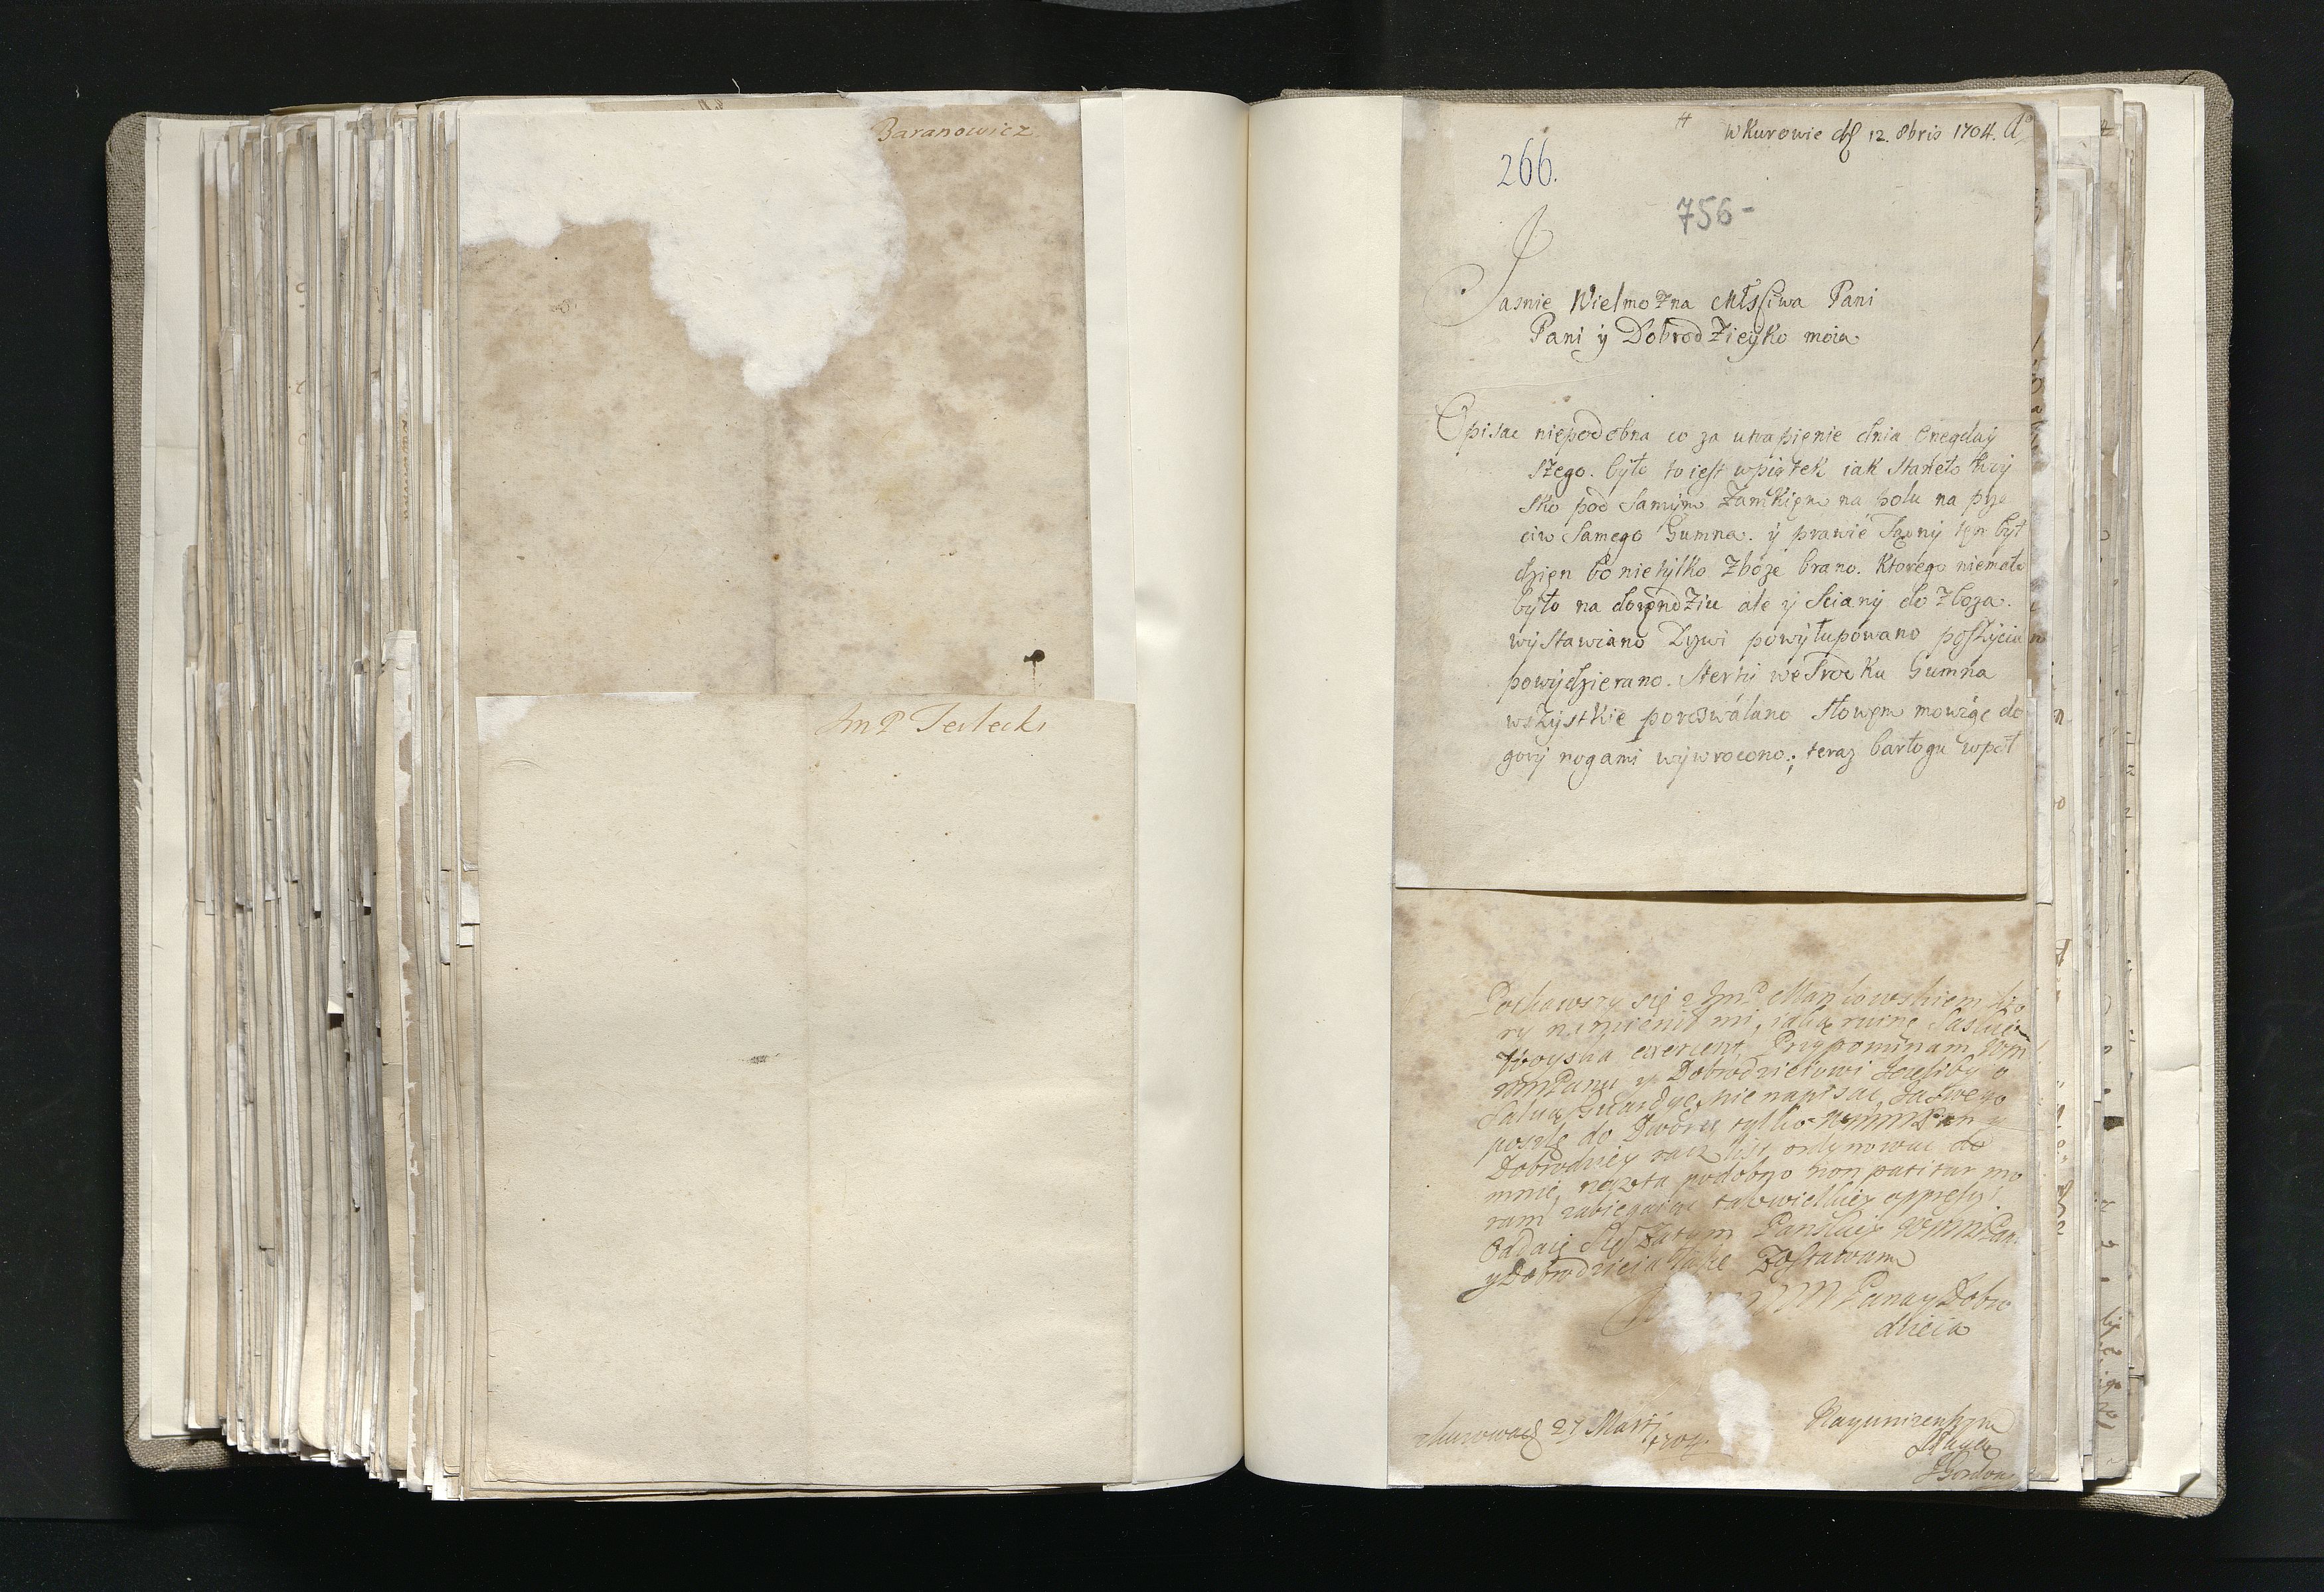 Baranowicz
Jm P Terlecki
W Kurowie d 12. 8bris 1704. A
266.
756-
Jasnie Wielmozna Młsciwa Pani
Pani y Dobrodzieyko moia
Opisac niepodobna co za utrapienie dnia Onegday
szego. było to iest wpiątek iak Staneło Woy
sko pod Samym Zamkiem na polu na prze
ciw Samego Gumna. y prawie Sądny ten był
dzien bo nie tylko Zboze brano. Ktorego niemało
było na dorędziu ale y Sciany do Zboza.
wystawiano Drzwi powyłupowano poszycia
powydzierano. Sterty we Srodku Gumna
wszystkie porozwalano Słowem mowiąc do
gory nogami wywrocono.; teraz barłogu wpół
się z Jm P Mankowskiem kto
ry namienił mi, iaką ruinę Saskie
Woyska exercent, Przypominam Wm
WmPanu y Dobrodzieiowi Jezeliby o
Salwą Gwardye nie napisac, Ja swego
poszlę do Dworu tylko WmmPan y
Dobrodziey racz list ordynowac do
mnie, rzecz ta podobno non patitur mo
ram zabiegaiąc tak wielkiey oppressyi
Oddaię się Zatym Panskiey WmmPan
y Dobrodzieia łasce Zostawam
Pana y Dobro
dzieia
27 Martij
1704.
Nayunizenszym
Sługą
Gordon